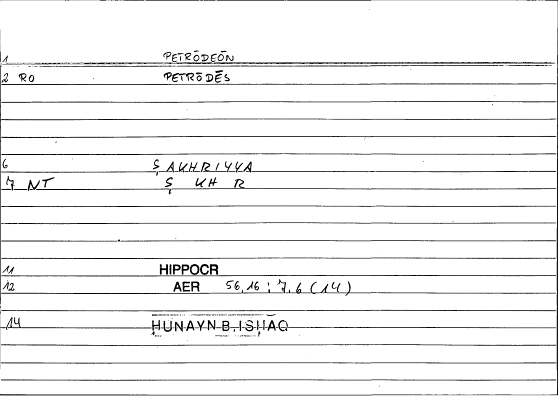 1 PETRŌDEŌN
2 RO PETRŌDĒS
6 ṢAKHRIYYA
7 NT Ṣ KH R
11 HIPPOCR
12 AER 56,16 : 7,6 (14)
14 ḤUNAYN B. ISḤĀQ